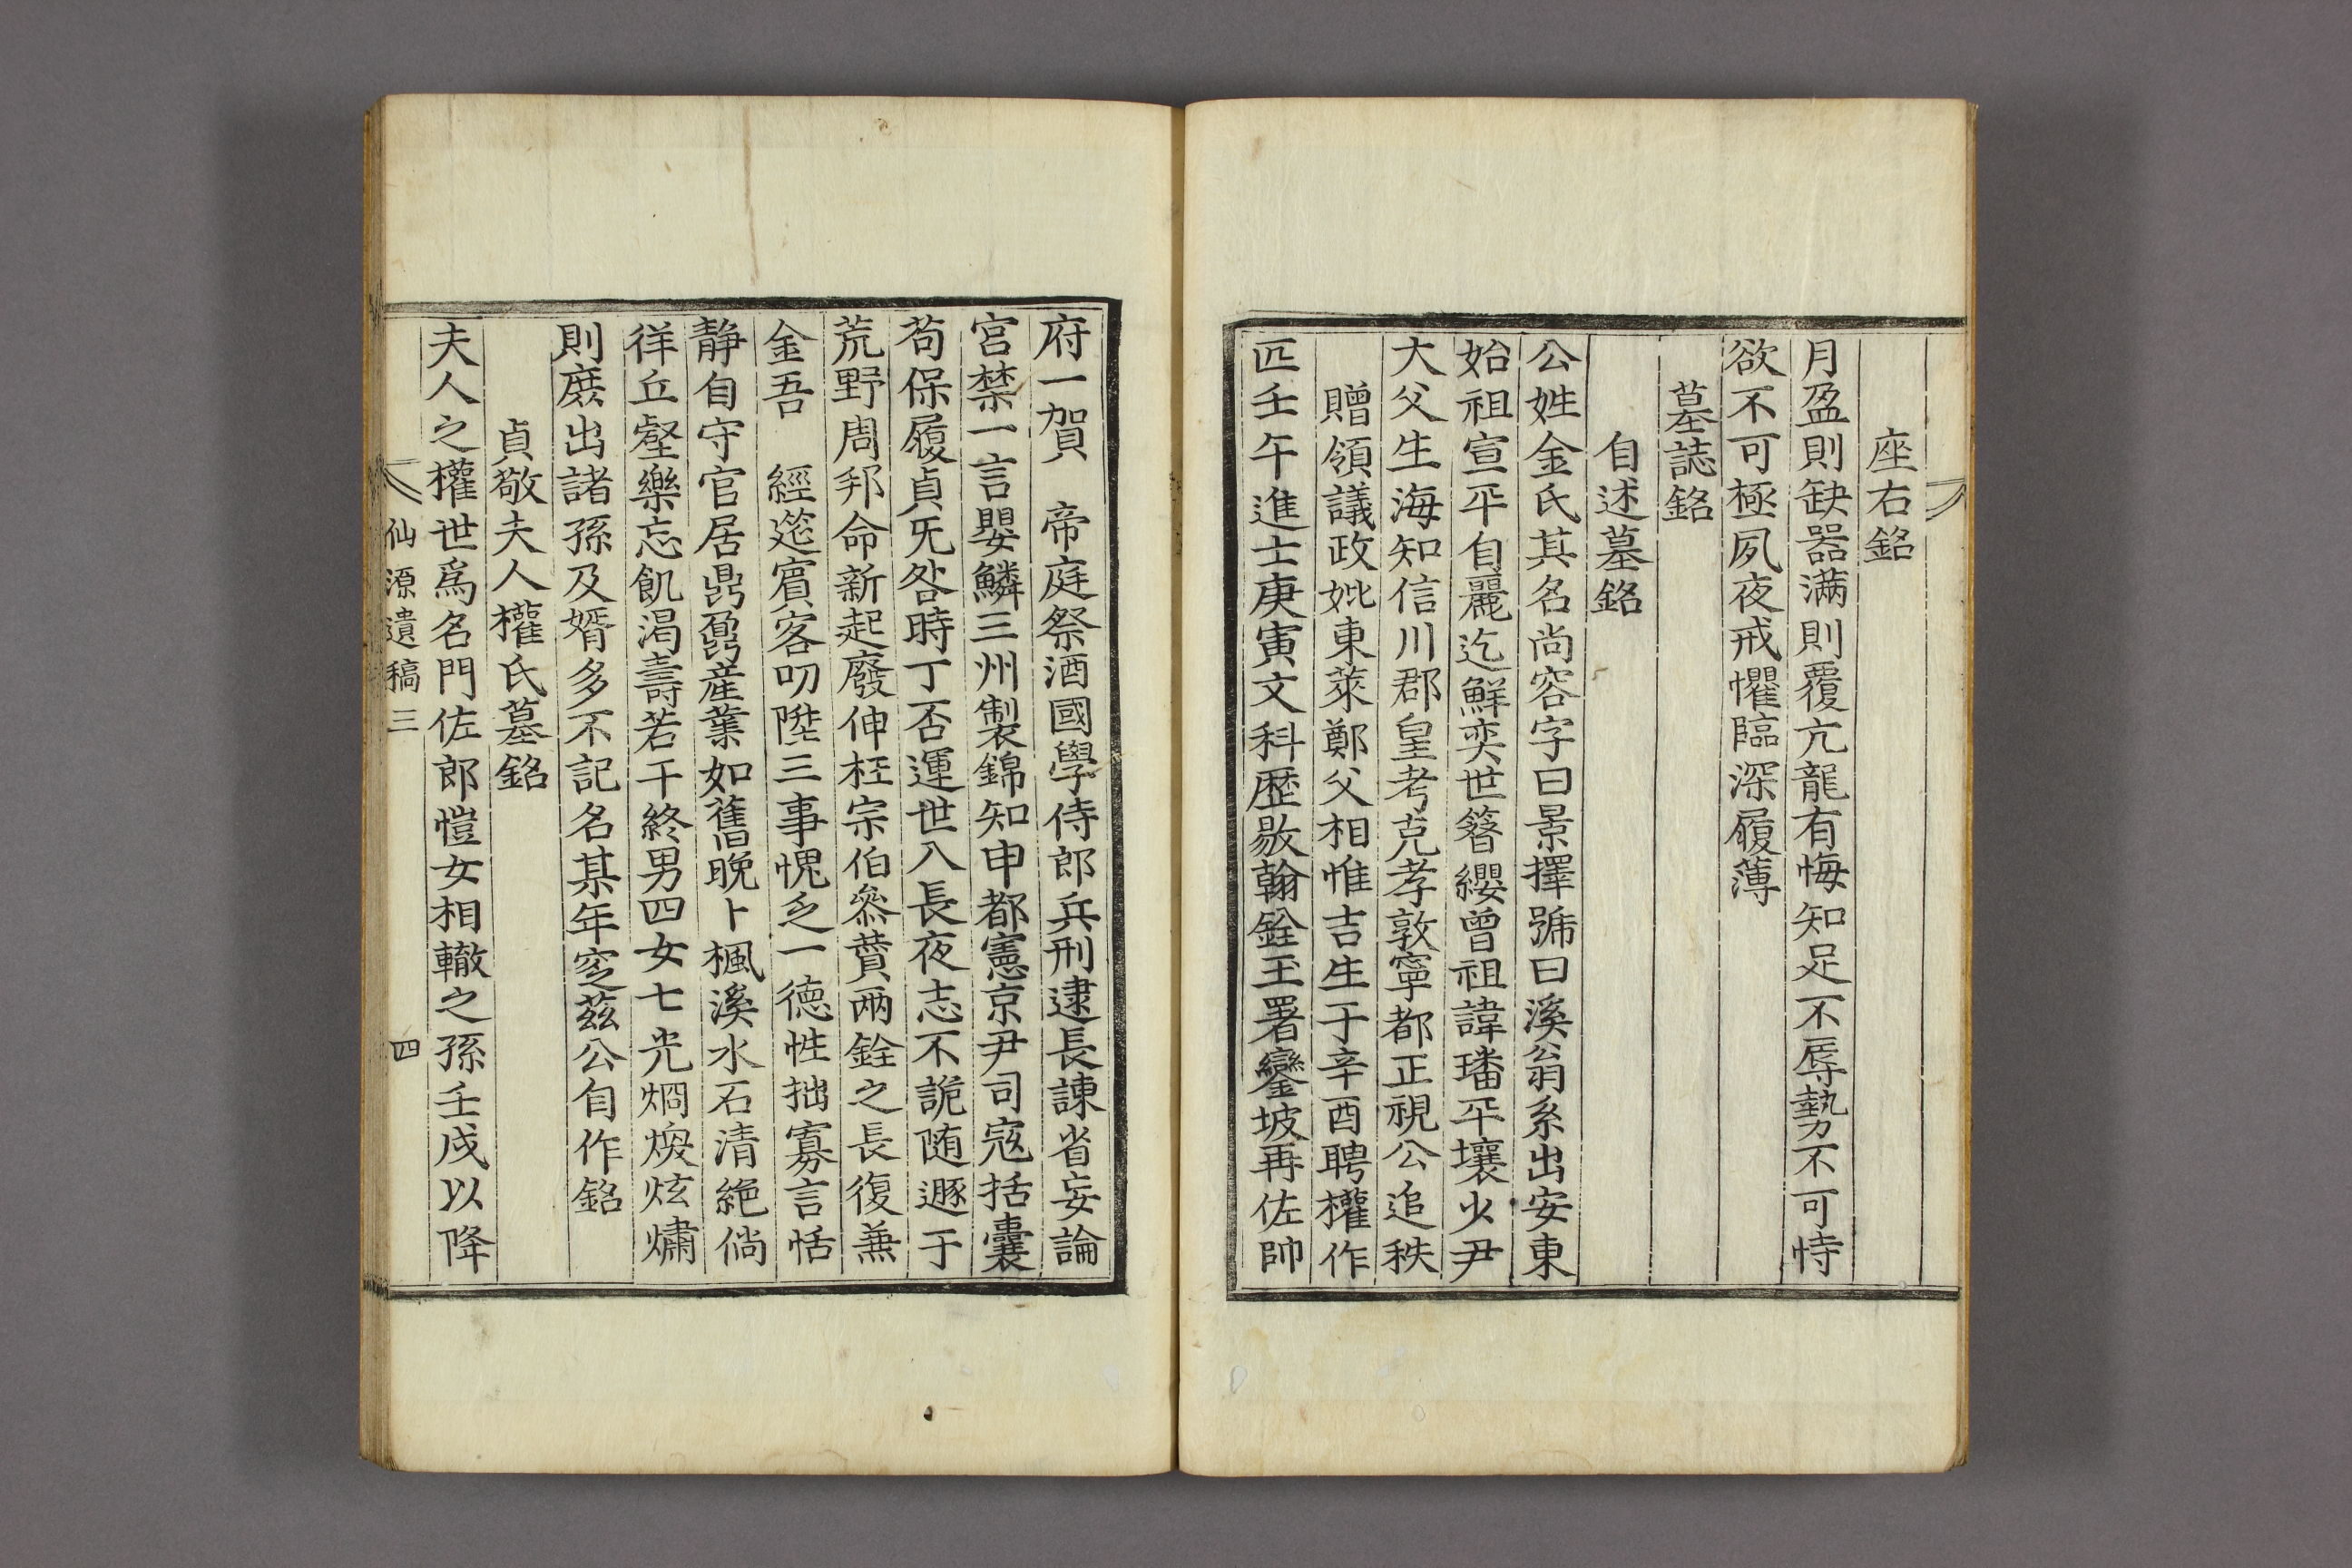 座右銘
月盈則缺器滿則覆亢龍有悔知足不辱勢不可恃
欲不可極夙夜戒懼臨深履薄
墓誌銘
自述墓銘
公姓金氏其名尙容字曰景擇號曰溪翁系出安東
始祖宣平自麗迄鮮奕世簪纓曾祖諱璠平壤少尹
大父生海知信川郡皇考克孝敦寧都正視公追秩
贈領議政妣東萊鄭父相惟吉生于辛酉聘權作
匹壬午進士庚寅文科歷敭翰銓玉署鑾坡再佐帥
府一賀 帝庭祭酒國學侍郎兵刑逮長諫省妄論
宮禁一言嬰鱗三州製錦知申都憲京尹司寇括囊
苟保履貞旡咎時丁否運世入長夜志不詭随遯于
荒野周邦命新起廢伸枉宗伯叅贊兩銓之長復兼
金吾 經筵賓客叨陞三事愧乏一德性拙寡言恬
静自守官居鼎鼐產業如舊晚卜楓溪水石清絶倘
徉丘壑樂忘飢渴壽若干終男四女七光烱焕炫爌
則庶出諸孫及婿多不記名某年窆茲公自作銘
貞敬夫人權氏墓銘
夫人之權世爲名門佐郎愷女相轍之孫壬戌以降
仙源遺稿三 四